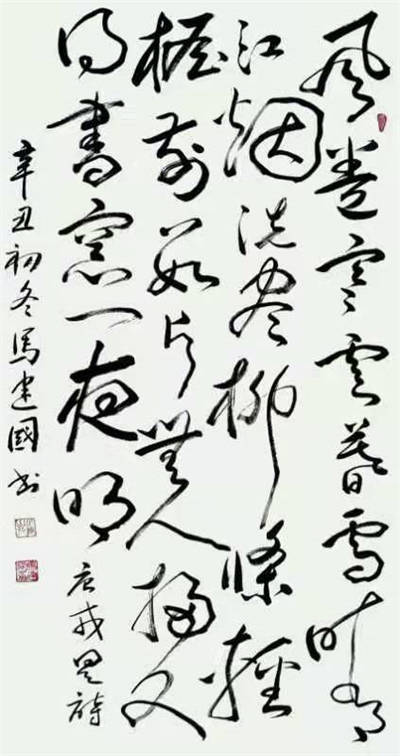 風卷寒雲暮雪晴
江烟洗盡柳條輕
檐前數片無人掃又
得書窓一夜明 唐戎昱詩
辛丑初冬馬建國書